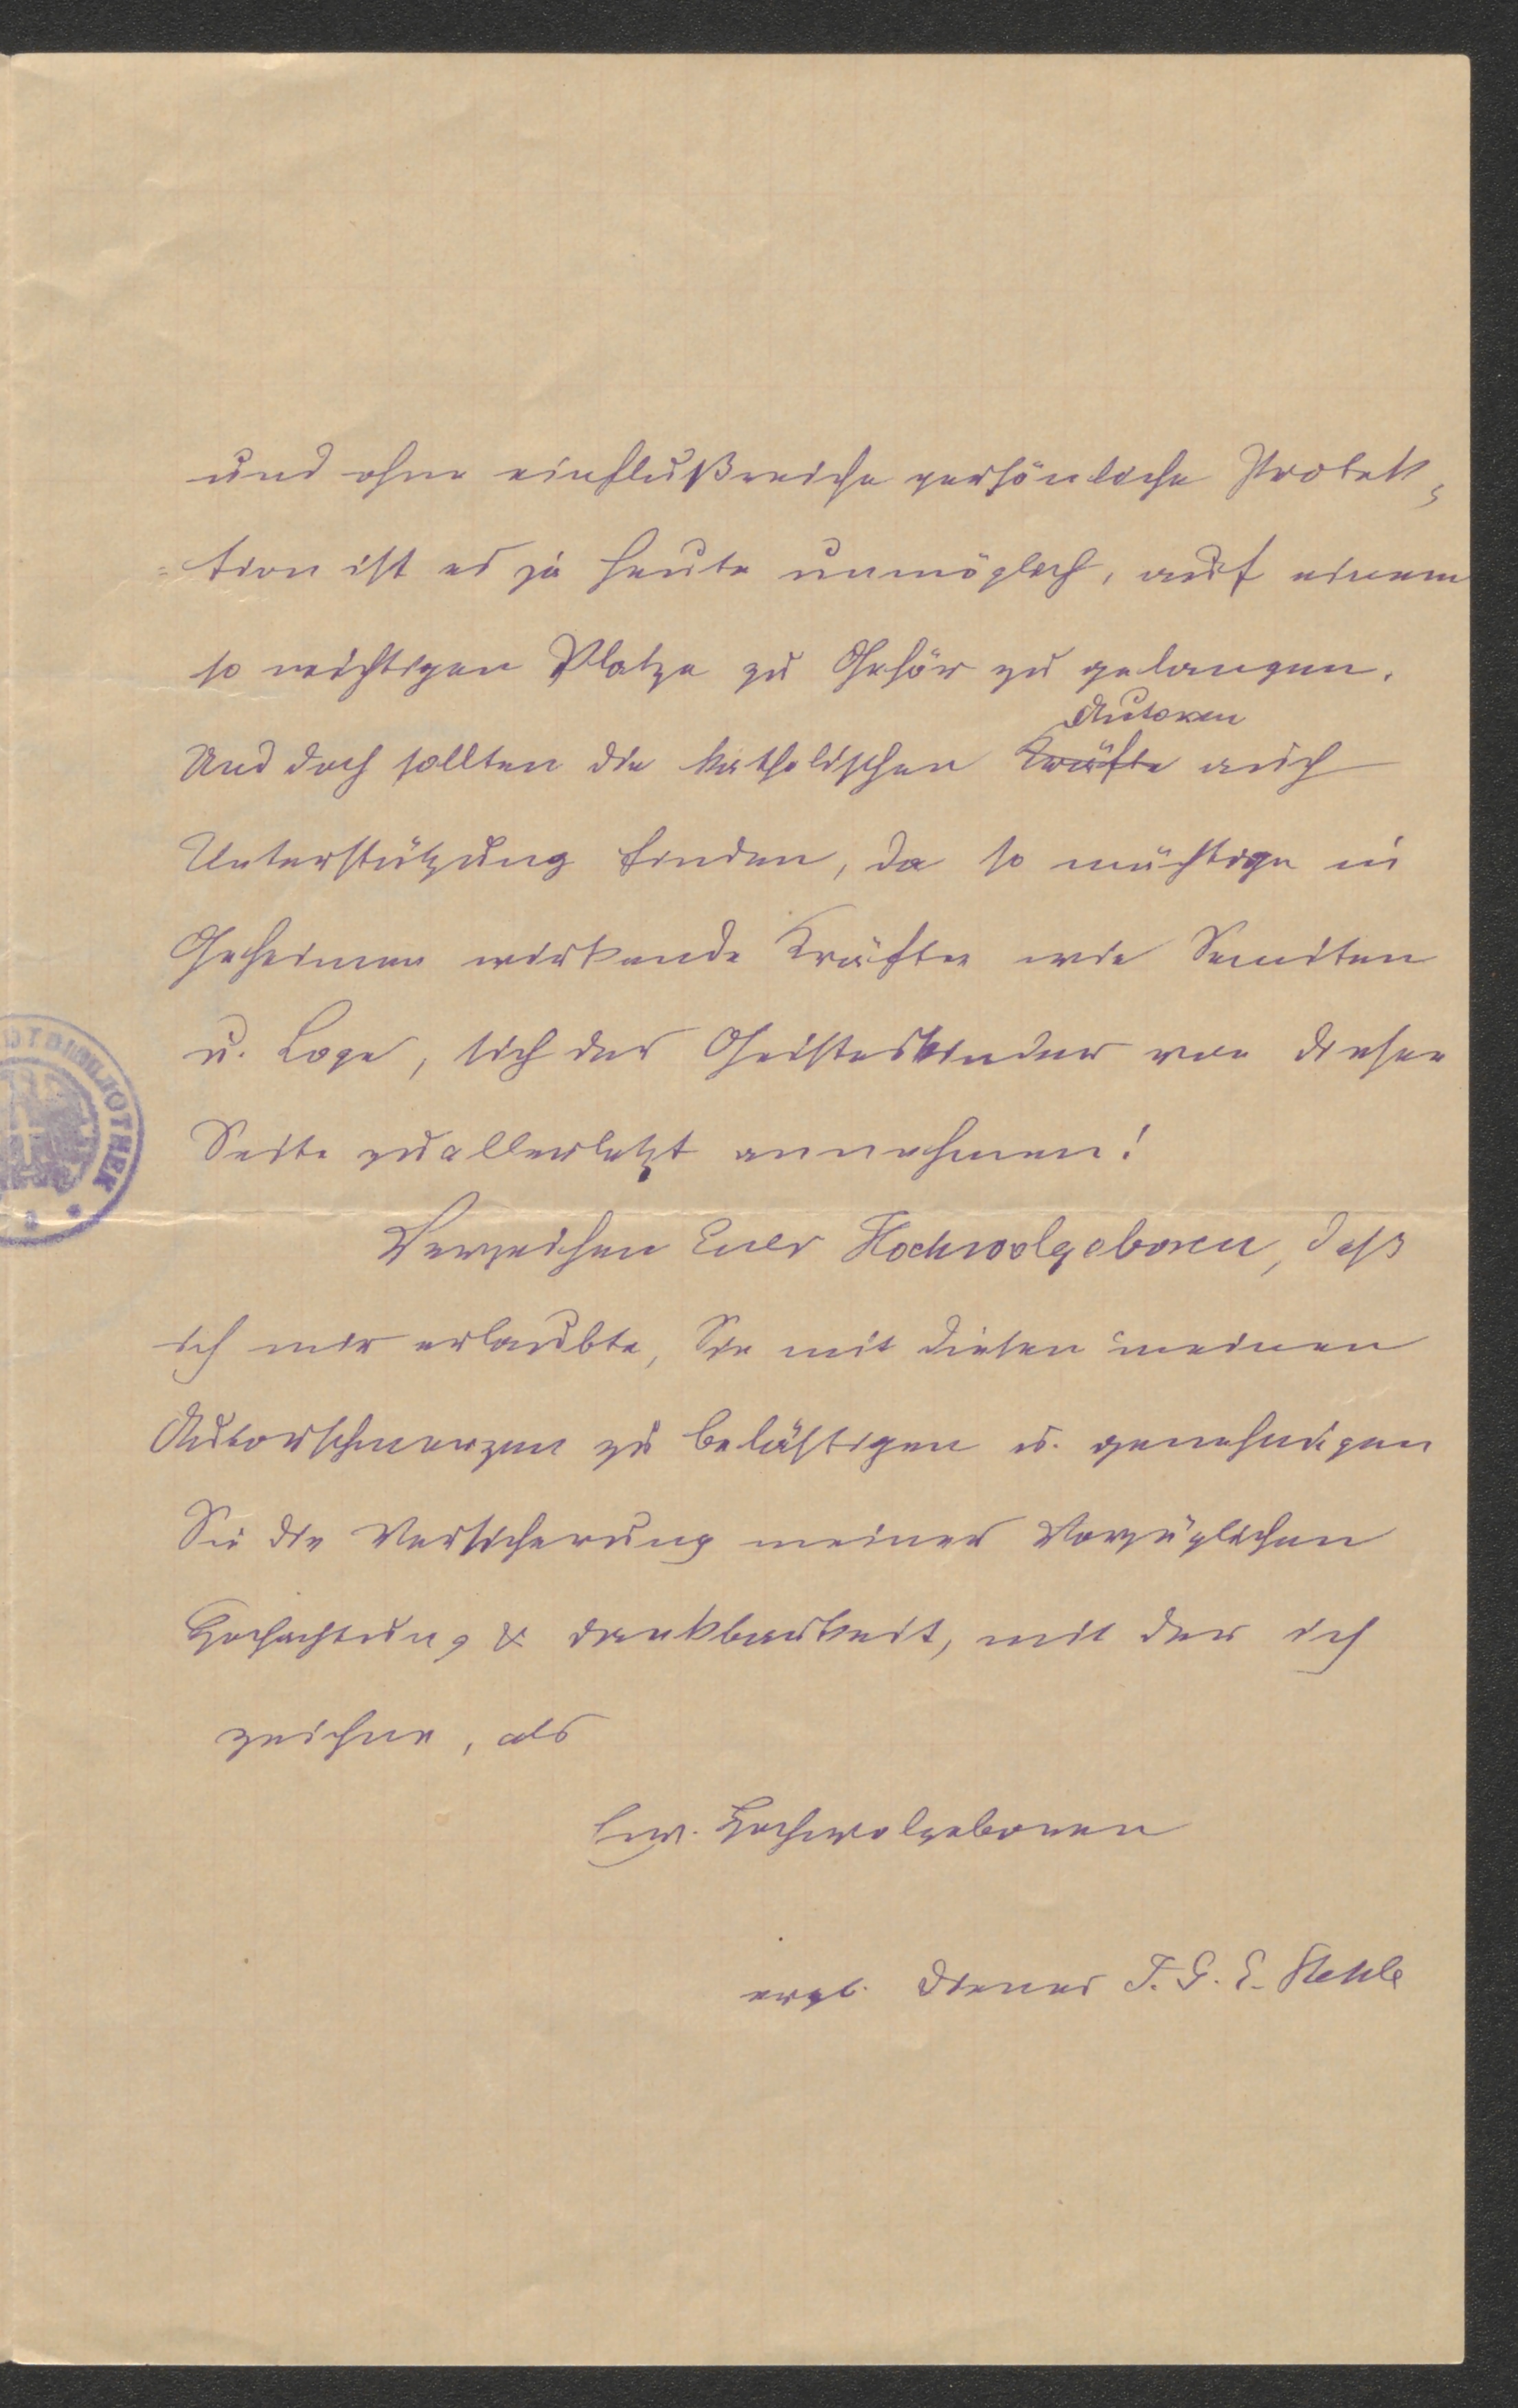 und ohne einflußreiche persönliche Protek-
=tion ist es ja heute unmöglich, auf einem
so wichtigen Platze zu Gehör zu gelangen.
Autoren
Und doch sollten die katholischen Kräfte auch
Unterstützung finden, da so mächtige im
Geheimen wirkende Kräfte wie Semiten
u. Loge, sich der Geisteskinder von dieser
Seite zuallerletzt annehmen!
Verzeihen Euer Hochwolgeboren, daß
ich mir erlaubte, Sie mit diesen meinen
Autorschmerzen zu belästigen u. genehmigen
Sie die Versicherung meiner vorzüglichen
Hochachtung & Dankbarkeit, mit der ich
zeichne, als
Euer Hochwolgeboren
ergb. Diener J. G. E. Stehle